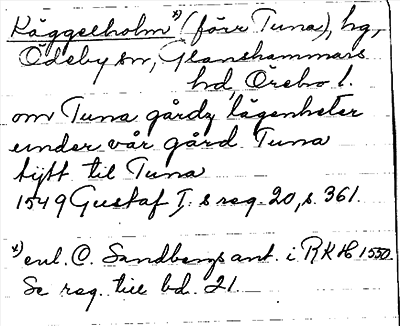 Käggelholm*) (förr Tuna), hg,
Ödeby sn, Glanshammars
hd, Örebro l.
om Tuna gårdz lägenheter
under vår gård Tuna
tijtt til Tuna
1549 Gustaf I. s reg. 20, s. 361.
*) enl. O. Sandbergs ant. i RKH 1550.
Se reg. till bd. 21.